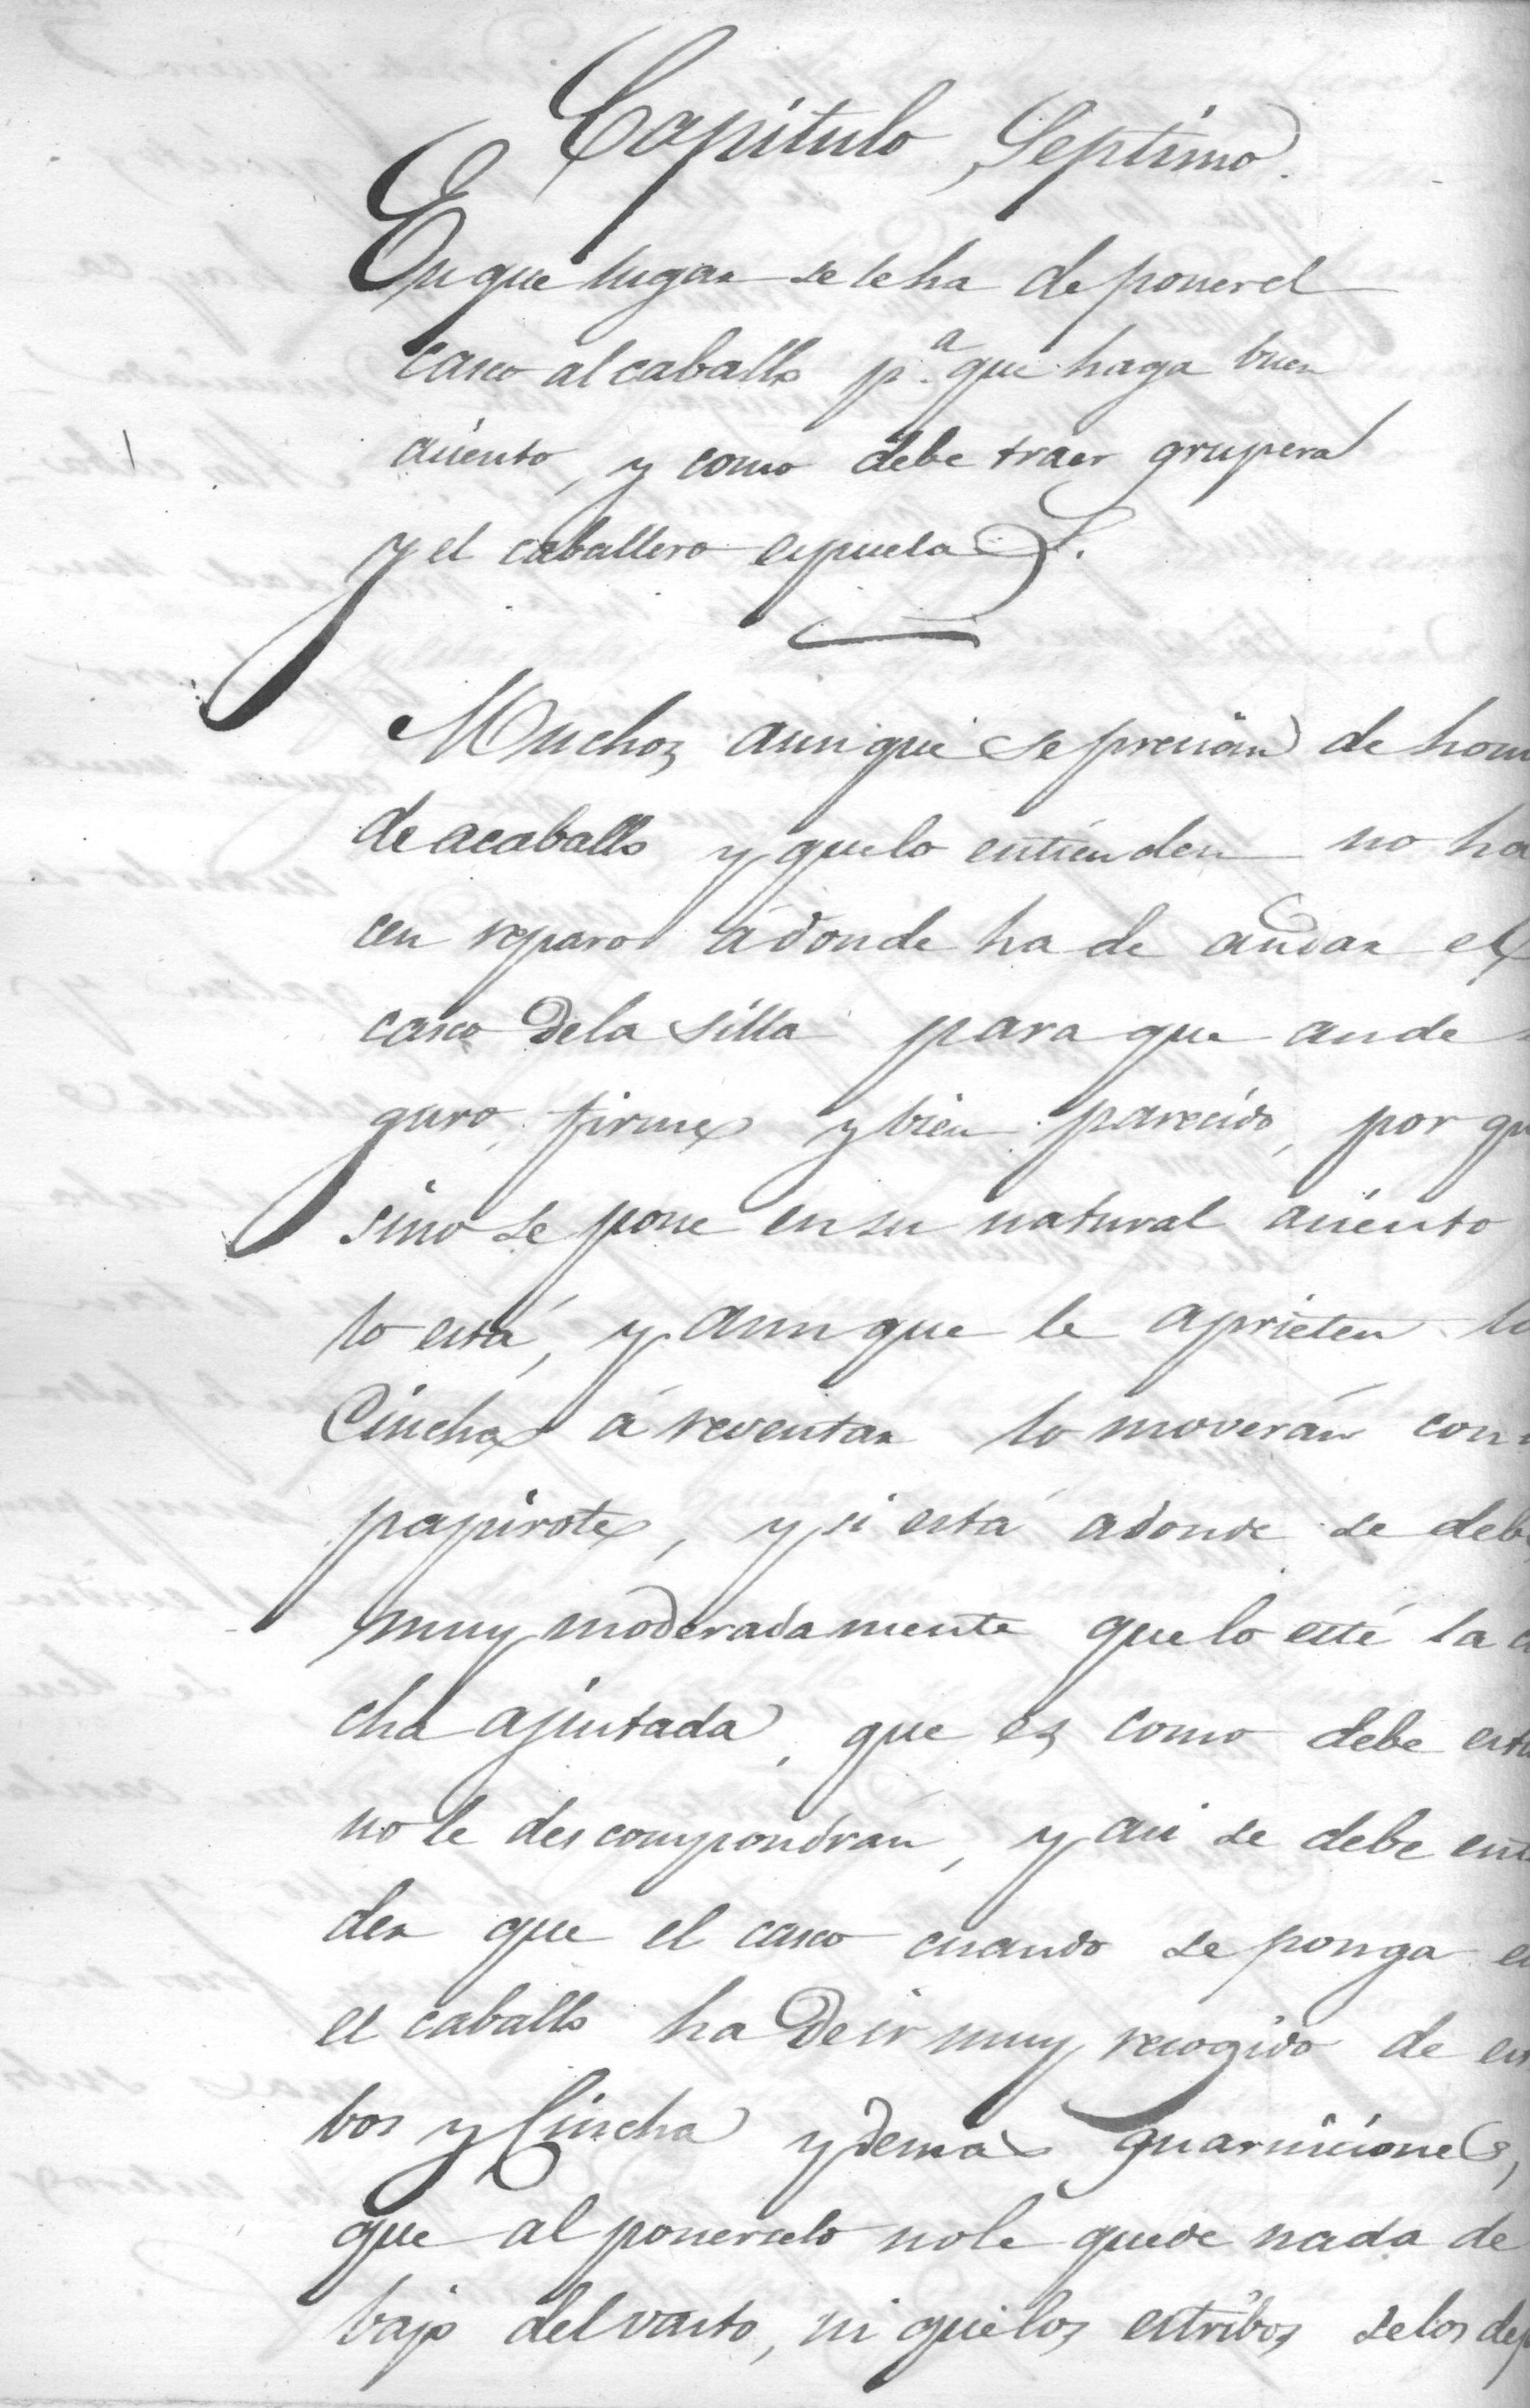 Capitulo Septimo.
En que lugar se le ha de poner el
casco al caballo p.ª que haga buen
asiento, y como debe traer grupera
y el caballero espuela S.
Muchos aunque se precian de hom
de acaballo y que lo entienden no ha
cen reparo á donde ha de andar el
casco de la silla para que ande
guro, firme y bien parecido, por qu
sino se pone en su natural asiento
lo está, y aunque le aprieten
Cincha á reventar lo moverán con
papirote, y si está adonde se deb
muy moderadamente que lo esté la
cha ajustada, que es como debe est
no le descompondran, y asi se debe ent
der que el casco cuando se ponga en
el caballo ha de ir muy recogido de es
bos y Cincha y demas guarniciones,
que al ponerselo no le quede nada de
bajo del vasto, ni que los estribos se los dej